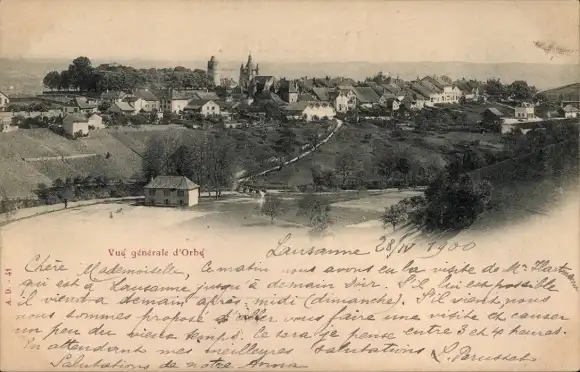 Vue générale d'Orbe
Lausanne 28/IV 1900
Chère Mademoiselle, ce matin nous avons eu la visite de Mr.
qui est à Lausanne jusqu'à demain soir. S'il lui est possible
il viendra demain après-midi (dimanche). S'il vient, nous
nous sommes proposé d'aller vous faire une visite et causer
un peu du vieux temps. Ce sera je pense entre 3 et 4 heures.
En attendant mes meilleures salutations
Salutations de notre Anna
A. D. - 41